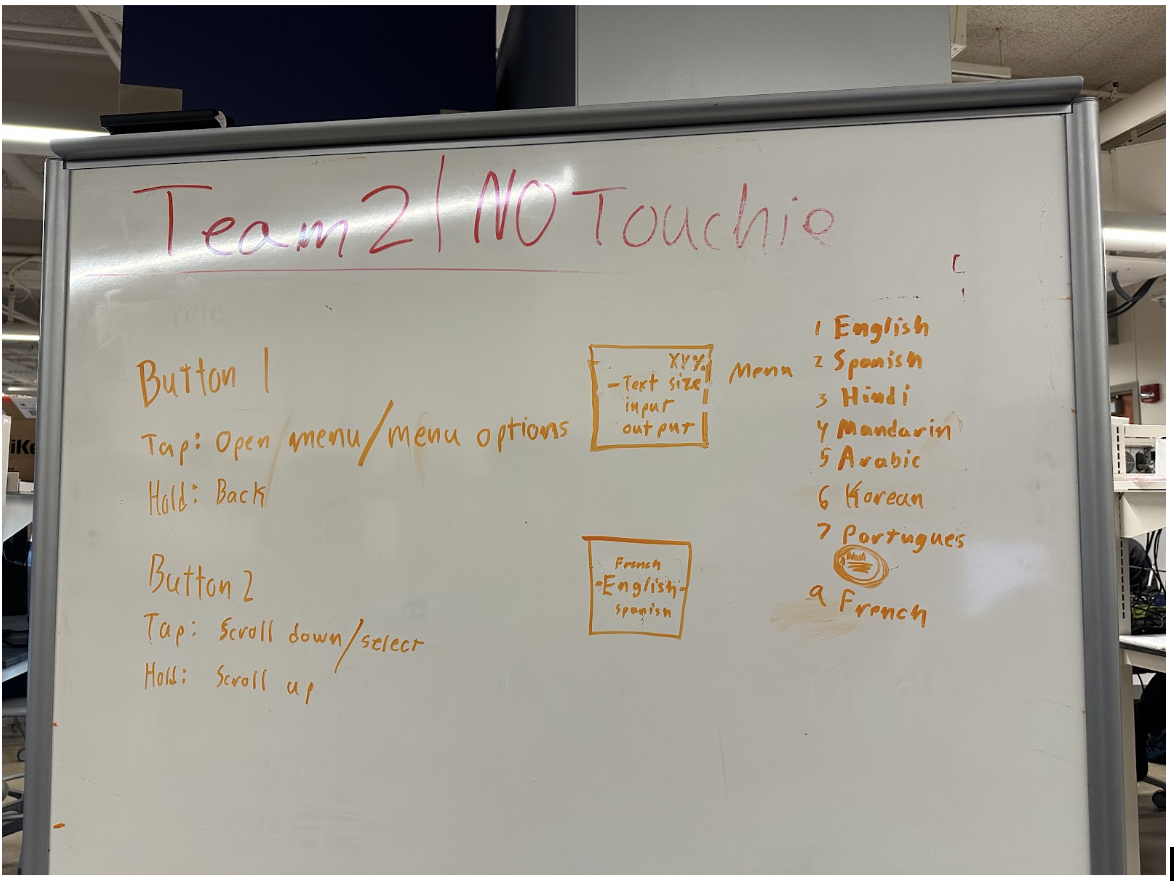 Team 2 | NO Touchie
Button 1
Tap: Open menu/menu options
Hold: Back
Button 2
Tap: Scroll down/select
Hold: Scroll up
XYY%
-Text size
input
output
Menu
French
-English-
Spanish
1 English
2 Spanish
3 Hindi
4 Mandarin
5 Arabic
6 Korean
7 Portugues
9 French